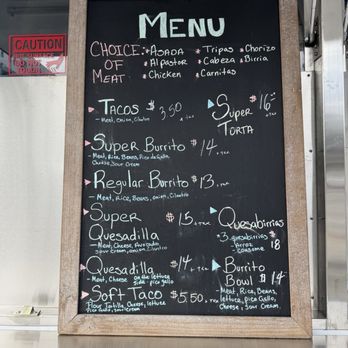 CAUTION
MENU
CHOICE OF MEAT
Asada
Tripas
Chorizo
Al pastor
Cabeza
Birria
Chicken
Carnitas
Tacos $3.50 + tax
- Meat, onion, Cilantro
Super Torta $16 + tax
Super Burrito $14 + tax
- Meat, Rice, Beans, Pico de Gallo,
Cheese, Sour Cream
Regular Burrito $13 + tax
- Meat, Rice, Beans, onion, Cilantro
Super Quesadilla $15 + tax
- Meat, Cheese,
Sour Cream, onion, Cilantro
Quesabirrias
- 3 quesabirrias
consome $18
Quesadilla $14 + tax
- Meat, Cheese on the side
lettuce pico gallo
Burrito Bowl $14
- Meat, Rice, Beans,
lettuce, pico Gallo,
Cheese, Sour Cream
Soft Taco $5.50 + tax
Flour Tortilla, Cheese, lettuce
Pico gallo, sour cream